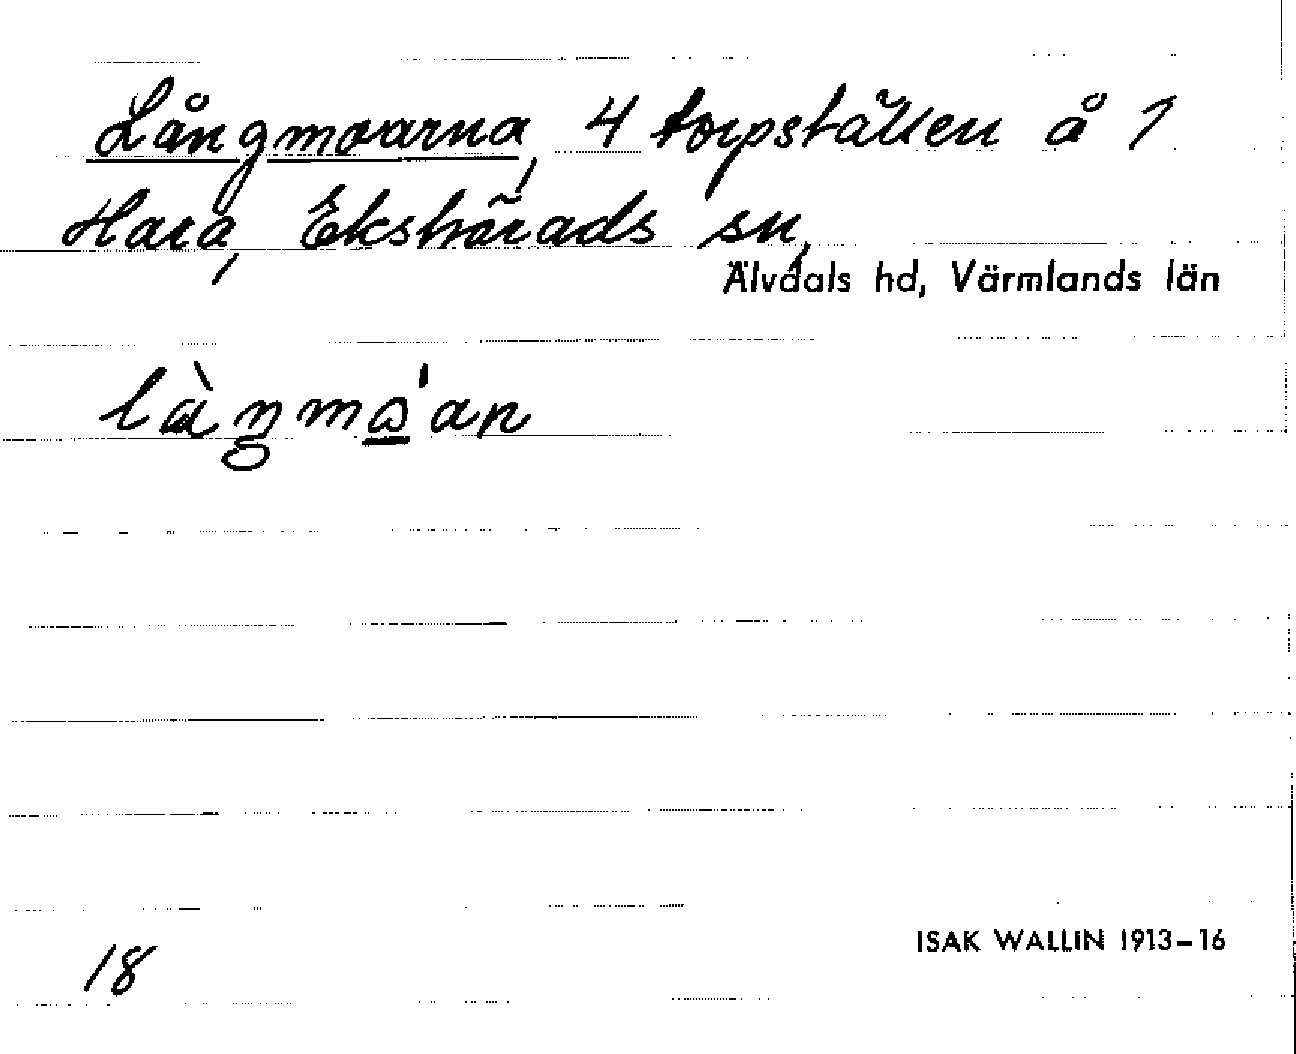 Långmoarna, 4 torpställen å 1
Hara, Ekshärads sn,
Älvdals hd, Värmlands län
ISAK WALLIN 1913–16
18